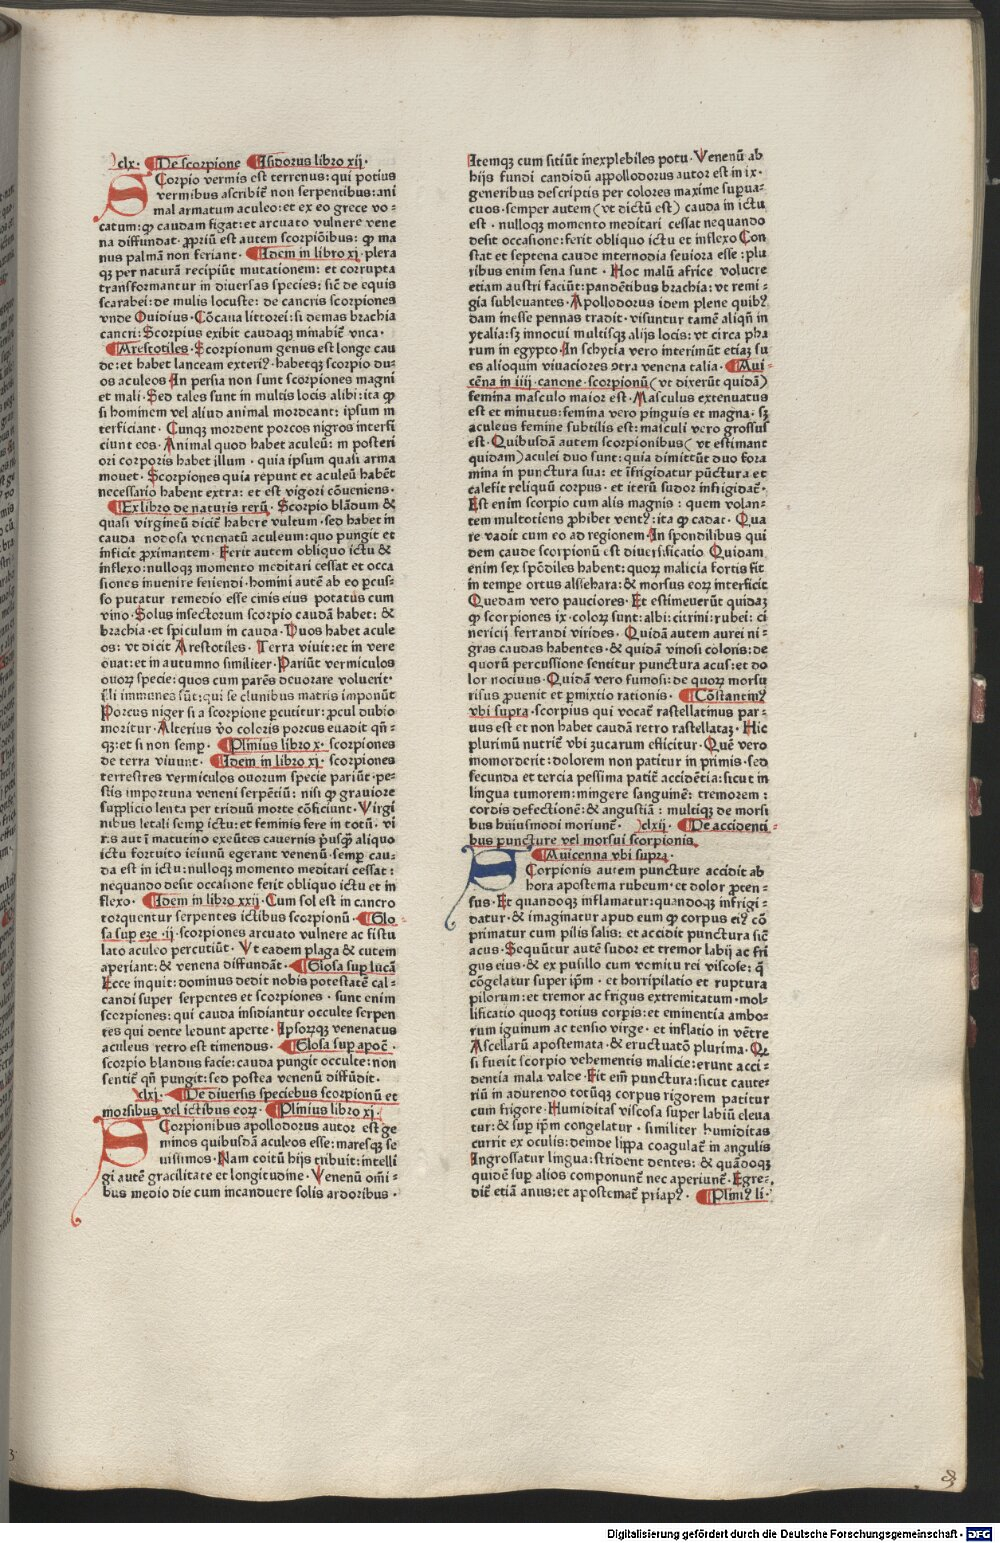 clx· De scorpione Isidorus libro xij·
Scorpio vermis est terrenus: qui potius
vermibus ascribit̃ non serpentibus: ani
mal armatum aculeo: et ex eo grece vo⸗
catum: ꝙ caudam figat: et arcuato vulnere vene
na diffundat· ꝓpriũ est autem scorpiõibus: ꝙ ma
nus palmã non feriant· Idem in libro xj· plera
qꝫ per naturã recipiũt mutationem: et corrupta
transformantur in diuersas species: sic̃ de equis
scarabei: de mulis locuste: de cancris scorpiones
vnde Ouidius· Cõcaua littorei: si demas brachia
cancri: Scorpius exibit caudaqꝫ minabit̃ vnca·
Arestotiles· Scorpionum genus est longe cau
de: et habet lanceam exteriꝰ· habetqꝫ scorpio du⸗
os aculeos In persia non sunt scorpiones magni
et mali· Sed tales sunt in multis locis alibi: ita ꝙ
si hominem vel aliud animal mordeant: ipsum in
terficiant· Cunqꝫ mordent porcos nigros interfi
ciunt eos· Animal quod habet aculeũ: in posteri
ori corporis habet illum· quia ipsum quasi arma
mouet· Scorpiones quia repunt et aculeũ habẽt
necessario habent extra: et est vigori cõueniens·
Ex libro de naturis rerũ· Scorpio blãdum &
quasi virgineũ dicit̃ habere vultum· sed habet in
cauda nodosa venenatũ aculeum: quo pungit et
inficit ꝓximantem· Ferit autem obliquo ictu &
inflexo: nulloqꝫ momento meditari cessat et occa
siones inuenire feriendi· homini autẽ ab eo ꝑcus⸗
so putatur remedio esse cinis eius potatus cum
vino· Solus insectorum scorpio caudã habet: &
brachia· et spiculum in cauda· Duos habet acule
os: vt dicit Arestotiles· Terra viuit: et in vere
ouat: et in autumno similiter· Pariũt vermiculos
ouoꝝ specie: quos cum parẽs deuorare voluerit·
illi immunes sũt: qui se clunibus matris imponũt
Porcus niger si a scorpione ꝑcutitur: ꝓcul dubio
moritur· Alterius v̊o coloris porcus euadit qñ⸗
qꝫ: et si non semꝑ· Plinius libro x· scorpiones
de terra viuunt· Idem in libro xj· scorpiones
terrestres vermiculos ouorum specie pariũt· pe⸗
stis importuna veneni serpẽtiũ: nisi ꝙ grauiore
supplicio lenta per triduũ morte cõficiunt· Virgi
nibus letali semꝑ ictu: et feminis fere in totũ· vi
ris aut ĩ matutino exeũtes cauernis p̃usqꝫ̃ aliquo
ictu fortuito ieiunũ egerant venenũ· semꝑ cau⸗
da est in ictu: nulloqꝫ momento meditari cessat:
nequando desit occasione ferit obliquo ictu et in
flexo· Idem in libro xxij· Cum sol est in cancro
torquentur serpentes ictibus scorpionũ· Glo
sa suꝑ eze· ij· scorpiones arcuato vulnere ac fistu
lato aculeo percutiũt· Vt eadem plaga & cutem
aperiant: & venena diffundãt· Glosa suꝑ lucã
Ecce inquit: dominus dedit nobis potestatẽ cal⸗
candi super serpentes et scorpiones· sunt enim
scorpiones: qui cauda insidiantur occulte serpen
tes qui dente ledunt aperte· Ipsorqꝫ venenatus
aculeus retro est timendus· Glosa suꝑ apoc̃·
scorpio blandus facie: cauda pungit occulte: non
sentit̃ qñ pungit: sed postea venenũ diffũdit·
clxj· De diuersis speciebus scorpionũ et
morsibus vel ictibus eoꝝ· Plinius libro xj·
Scorpionibus apollodorus autor est ge
minos quibusdã aculeos esse: maresqꝫ se
uissimos· Nam coitũ hijs tribuit: intelli
gi autẽ gracilitate et longitudine· Venenũ oĩni⸗
bus medio die cum incanduere solis ardoribus·
Itemqꝫ cum sitiũt inexplebiles potu· Venenũ ab
hijs fundi candidũ appollodorus autor est in ix·
generibus descriptis per colores maxime suꝑua⸗
cuos· semper autem (vt dictũ est) cauda in ictu
est· nulloqꝫ momento meditari cessat nequando
desit occasione: ferit obliquo ictu et inflexo Con
stat et septena caude internodia seuiora esse: plu
ribus enim sena sunt· Hoc malũ africe volucre
etiam austri faciũt: pandẽtibus brachia: vt remi⸗
gia subleuantes· Apollodorus idem plene quibꝰ
dam inesse pennas tradit· visuntur tamẽ aliqñ in
ytalia: sꝫ innocui multisqꝫ alijs locis: vt circa pha
rum in egypto· In schytia vero interimũt etiaꝫ su
es alioquin viuaciores ↄtra venena talia· Aui⸗
cẽna in iiij· canone· scorpionũ (vt dixerũt quidã)
femina masculo maior est· Masculus extenuatus
est et minutus: femina vero pinguis et magna· sꝫ
aculeus femine subtilis est: masculi vero grossus
est· Quibusdã autem scorpionibus (vt estimant
quidam) aculei duo sunt: quia dimittũt duo fora
mina in punctura sua: et ĩfrigidatur pũctura et
calefit reliquũ corpus· et iterũ sudor infrigidat̃·
Est enim scorpio cum alis magnis: quem volan⸗
tem multotiens ꝓhibet ventꝰ: ita ꝙ cadat· Qua
re vadit cum eo ad regionem· In spondilibus qui
dem caude scorpionũ est diuersificatio Quidam
enim sex spõdiles habent: quoꝝ malicia fortis fit
in tempe ortus alsiehara: & morsus eoꝝ interficit
Quedam vero pauciores· Et estimeuerũt quidaꝫ
ꝙ scorpiones ix· coloꝝ sunt: albi: citrini: rubei: ci
nericij ferrandi virides· Quidã autem aurei ni⸗
gras caudas habentes· & quidã vinosi coloris: de
quorũ percussione sentitur punctura acus: et do
lor nociuus· Quidã vero fumosi: de quoꝝ morsu
risus ꝓuenit et ꝑmixtio rationis· Cõstantinꝰ
vbi supra· scorpius qui vocat̃ rastellatinus par⸗
uus est et non habet caudã retro rastellataꝫ· Hic
plurimũ nutrit̃ vbi zucarum efficitur· Quẽ vero
momorderit: dolorem non patitur in primis· sed
secunda et tercia pessima patit̃ accidẽtia: sicut in
lingua tumorem: mingere sanguinẽ: tremorem:
cordis defectionẽ: & angustiã: multiqꝫ de morsi
bus huiusmodi moriunt̃· clxij· De accidenti⸗
bus puncture vel morsui scorpionis·
Auicenna vbi supra·
Scorpionis autem puncture accidit ab
hora apostema rubeum· et dolor ꝓten⸗
sus· Et quandoqꝫ inflamatur: quandoqꝫ infrigi⸗
datur· & imaginatur apud eum ꝙ corpus eiꝰ cõ
primatur cum pilis salis: et accidit punctura sic̃
acus· Sequũtur autẽ sudor et tremor labij ac fri
gus eius· & ex pusillo cum vomitu rei viscose: q̃
cõgelatur super ip̃m· et horripilatio et ruptura
pilorum: et tremor ac frigus extremitatum· mol⸗
lificatio quoqꝫ totius corpis: et eminentia ambo⸗
rum iguinum ac tensio virge· et inflatio in vẽtre
Ascellarũ apostemata· & eructuatõ plurima· Qꝫ
si fuerit scorpio vehementis malicie: erunt acci⸗
dentia mala valde· Fit em̃ punctura: sicut caute⸗
riũ in adurendo totũqꝫ corpus rigorem patitur
cum frigore· Humiditas viscosa super labiũ eleua
tur: & suꝑ ip̃m congelatur· similiter humiditas
currit ex oculis: deinde lippa coagulat̃ in angulis
Ingrossatur lingua: strident dentes: & quãdoqꝫ
quidẽ suꝑ alios componunt̃ nec aperiunt̃· Egre⸗
dit̃ etiã anus: et apostemat̃ priapꝰ· Pliniꝰ li·
Digitalisierung gefördert durch die Deutsche Forschungsgemeinschaft · DFG